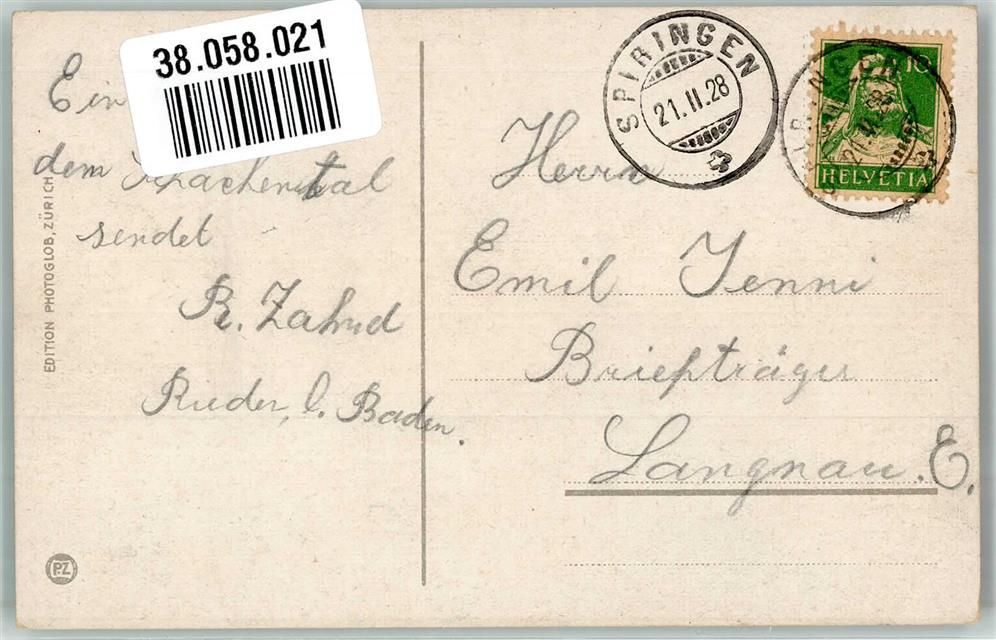 38.058.021
Ein
dem Schächental
sendet
R. Zahnd
Rieden, b. Baden.
EDITION PHOTOGLOB, ZÜRICH
P.Z
SPIRINGEN
21.II.28
10
HELVETIA
Herrn
Emil Jenni
Briefträger
Langnau. E.